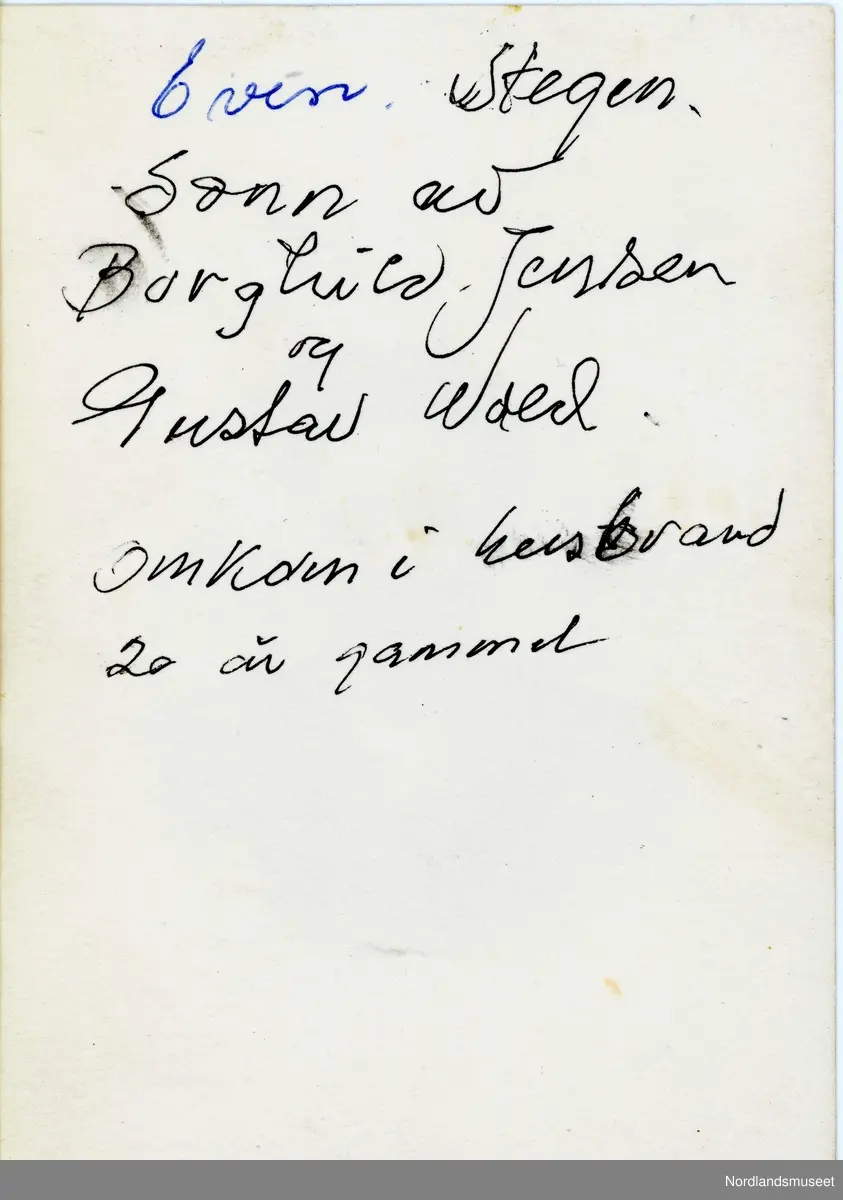 Even. Stegen.
Sønn av
Borghild. Jensen
og
Gustav Wold.
Omkom i husbrand
20 år gammel
Nordlandsmuseet